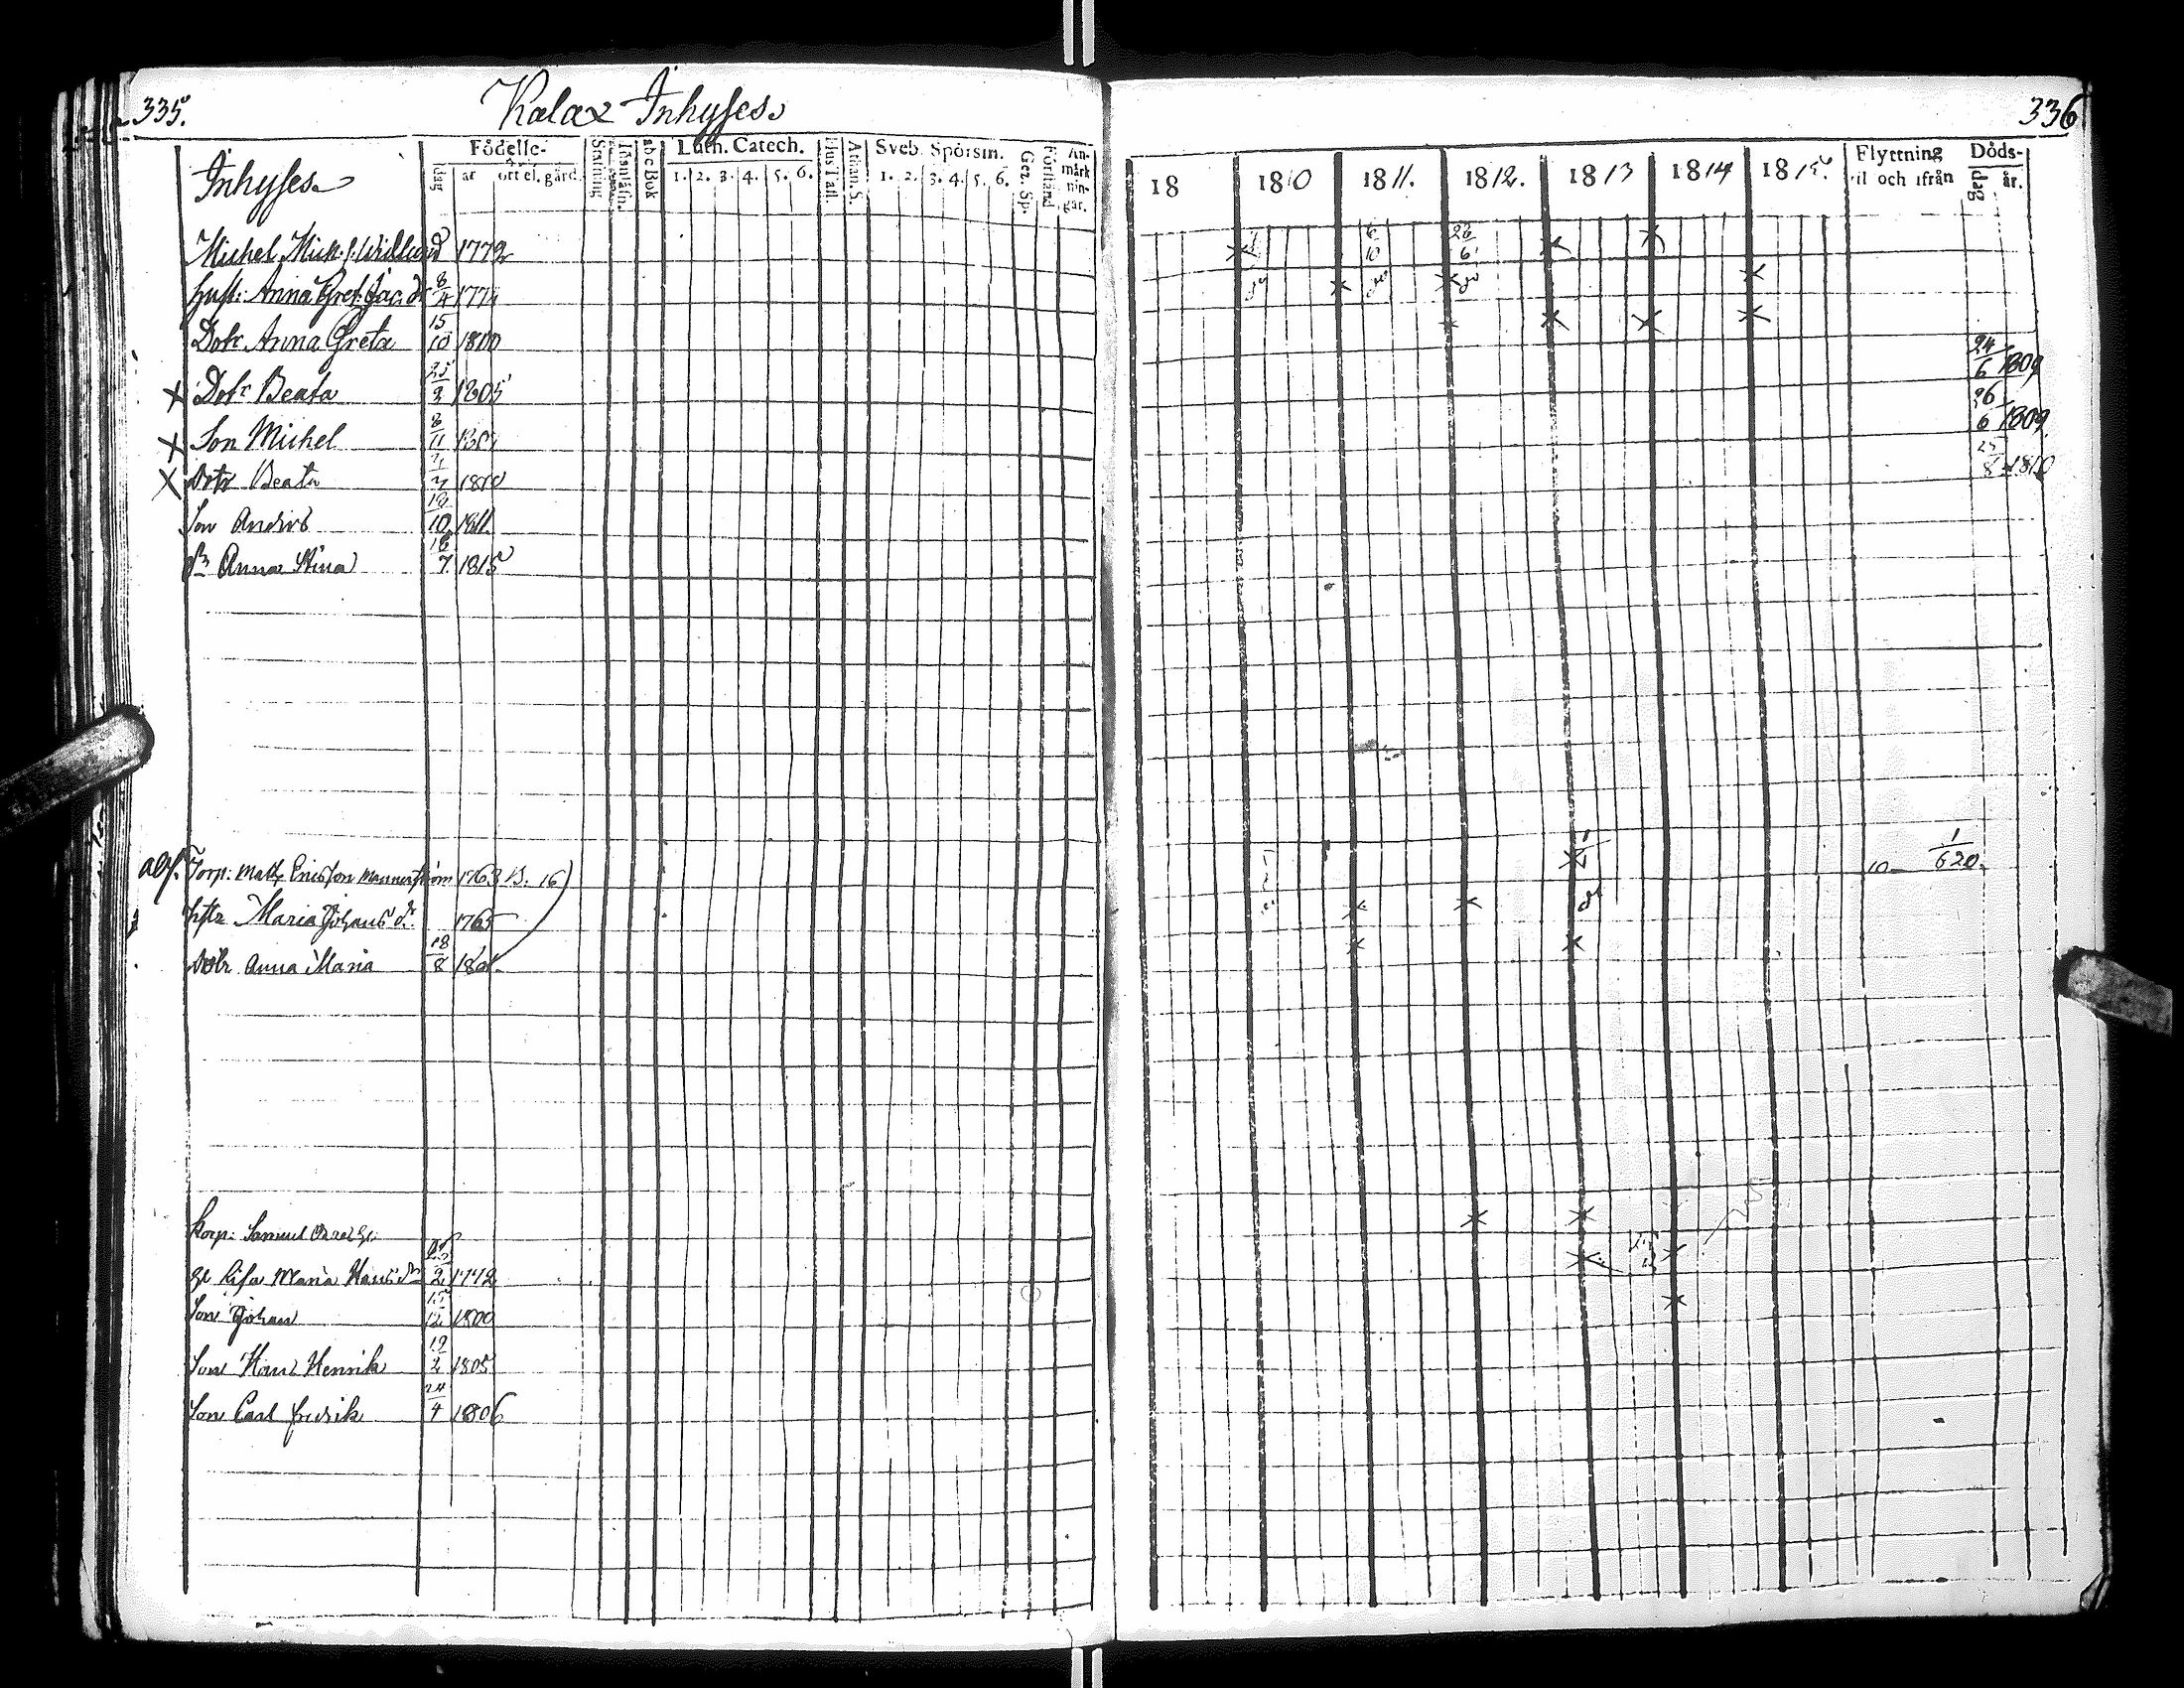 335.
Kalax Inhyses
Inhyses
Födelse-
dag år ort el. gård.
Stafning
abc Bok
Luth. Catech.
1. 2. 3. 4. 5. 6.
Hus Tafl.
Athan. S.
Sveb. Spörsm.
1. 2. 3. 4. 5. 6.
Gez. Sp.
Förstånd
An-
märk
nin-
gar.
Michel Mich. s. Widlund 1772
Hust: Anna Gret. Jac. dr 8/4 1774
Dotr Anna Greta 15/10 1800
x Dotr Beata 25/3 1805
x Son Michel 8/11 1807
x Dotr Beata 1810
Son Anders 10 1811.
Dr Anna Stina 18/7 1815
Torp: Matts Ericsson Mannerström 1763 B. 16
Hstr Maria Johans dr. 1765
Dotr Anna Maria 18/8 1801.
Korp: Samuel
Lisa Maria Hans dr 2 1772
Son Johan 15/12 1800
Son Hans Henrik 19/2 1805
Son Carl Fredrik 24/4 1806
336
18 1810 1811. 1812. 1813 1814 1815.
Flyttning
til och ifrån
Döds-
dag år.
6/10 23/6
24/6 1809
26/6 1809
25/8 1810
10 1/6 20.